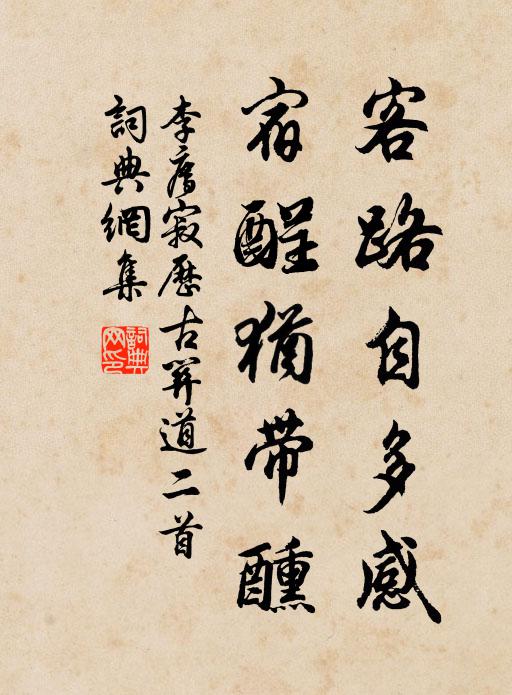 客路自多感
宿酲猶帶醺
李廌寂歷古道二首
詞典網集
詞典網印